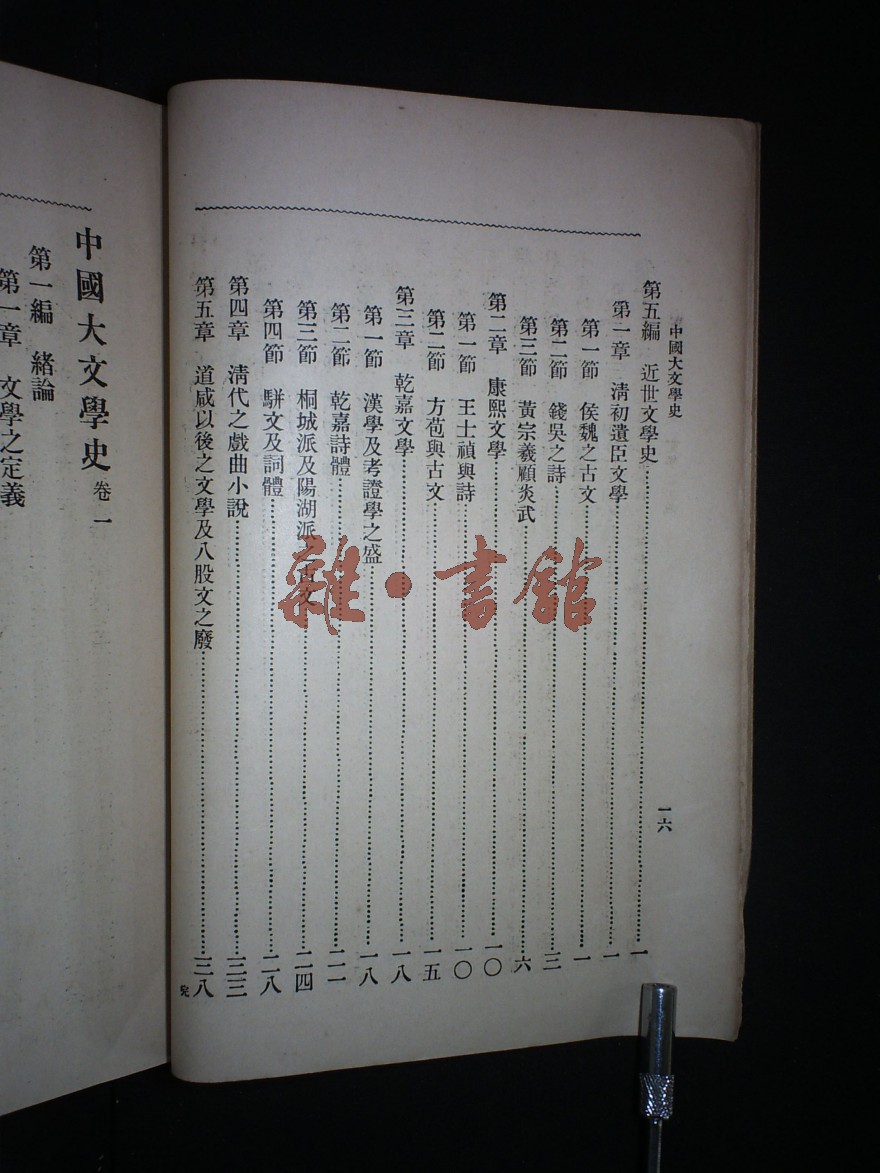 中國大文學史
一六
第五編 近世文學史 一
第一章 淸初遺臣文學 一
第一節 侯魏之古文 一
第二節 錢吳之詩 三
第三節 黃宗羲顧炎武 六
第二章 康熙文學 一〇
第一節 王士禎與詩 一〇
第二節 方苞與古文 一五
第三章 乾嘉文學 一八
第一節 漢學及考證學之盛 一八
第二節 乾嘉詩體 二一
第三節 桐城派及陽湖派 古文 二四
第四節 駢文及詞體 二八
第四章 淸代之戲曲小說 三三
第五章 道咸以後之文學及八股文之廢 三八
完
中國大文學史 卷一
第一編 緒論
第一章 文學之定義
雜·書館